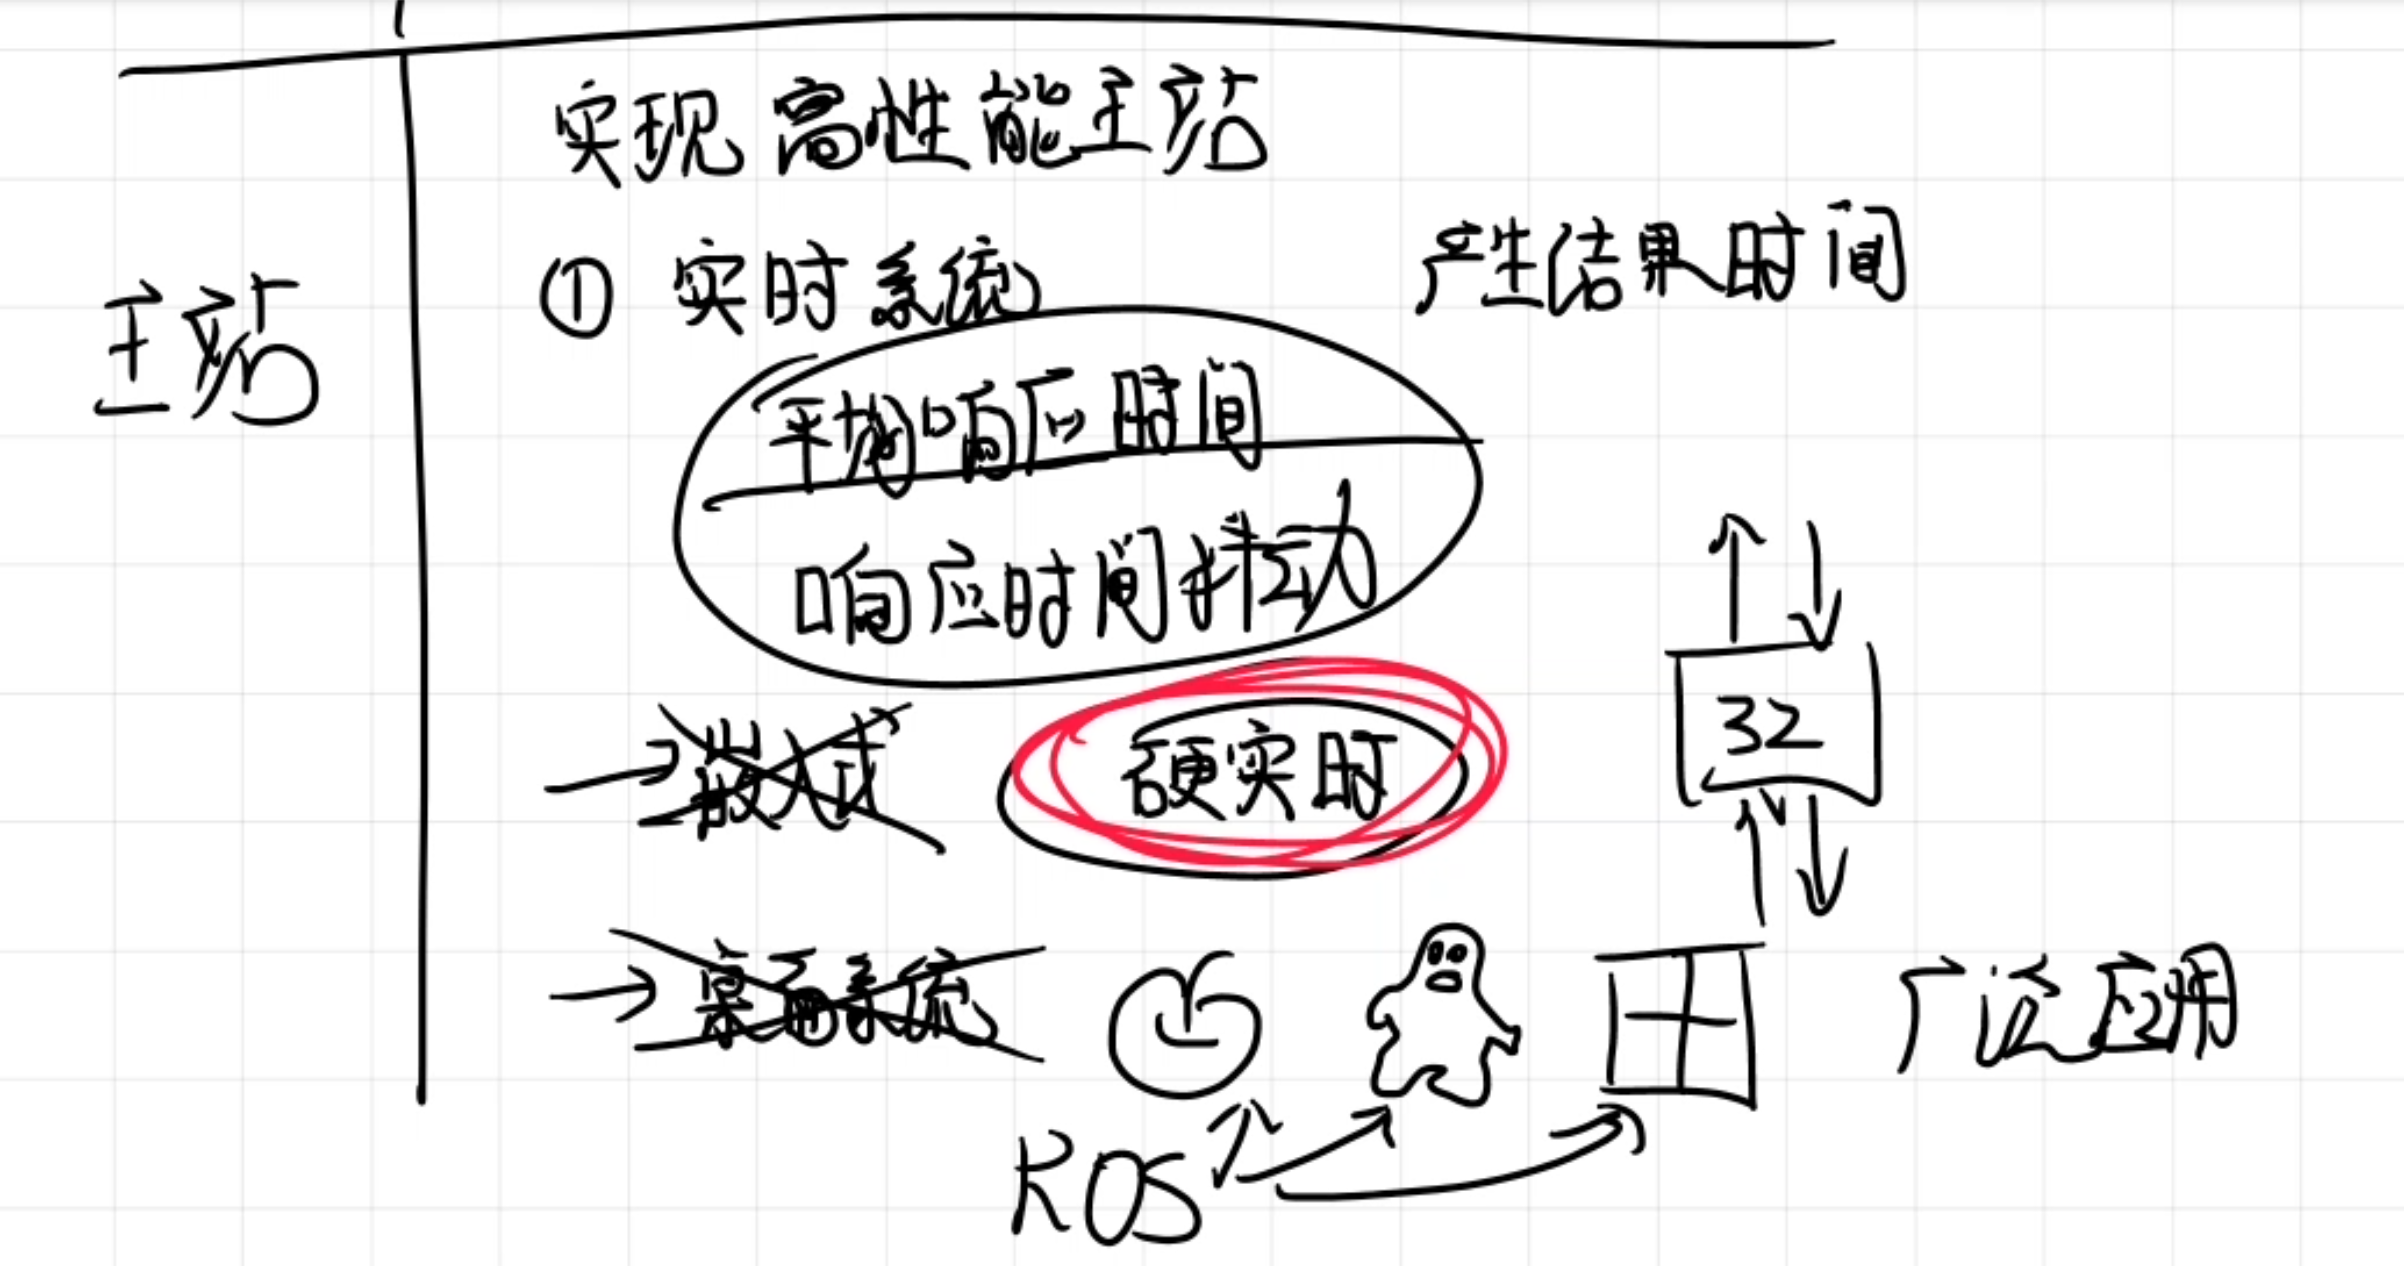 实现高性能主站
主站
① 实时系统
产生结果时间
平均响应时间
响应时间抖动
嵌入式
硬实时
32
桌面系统
广泛应用
ROS